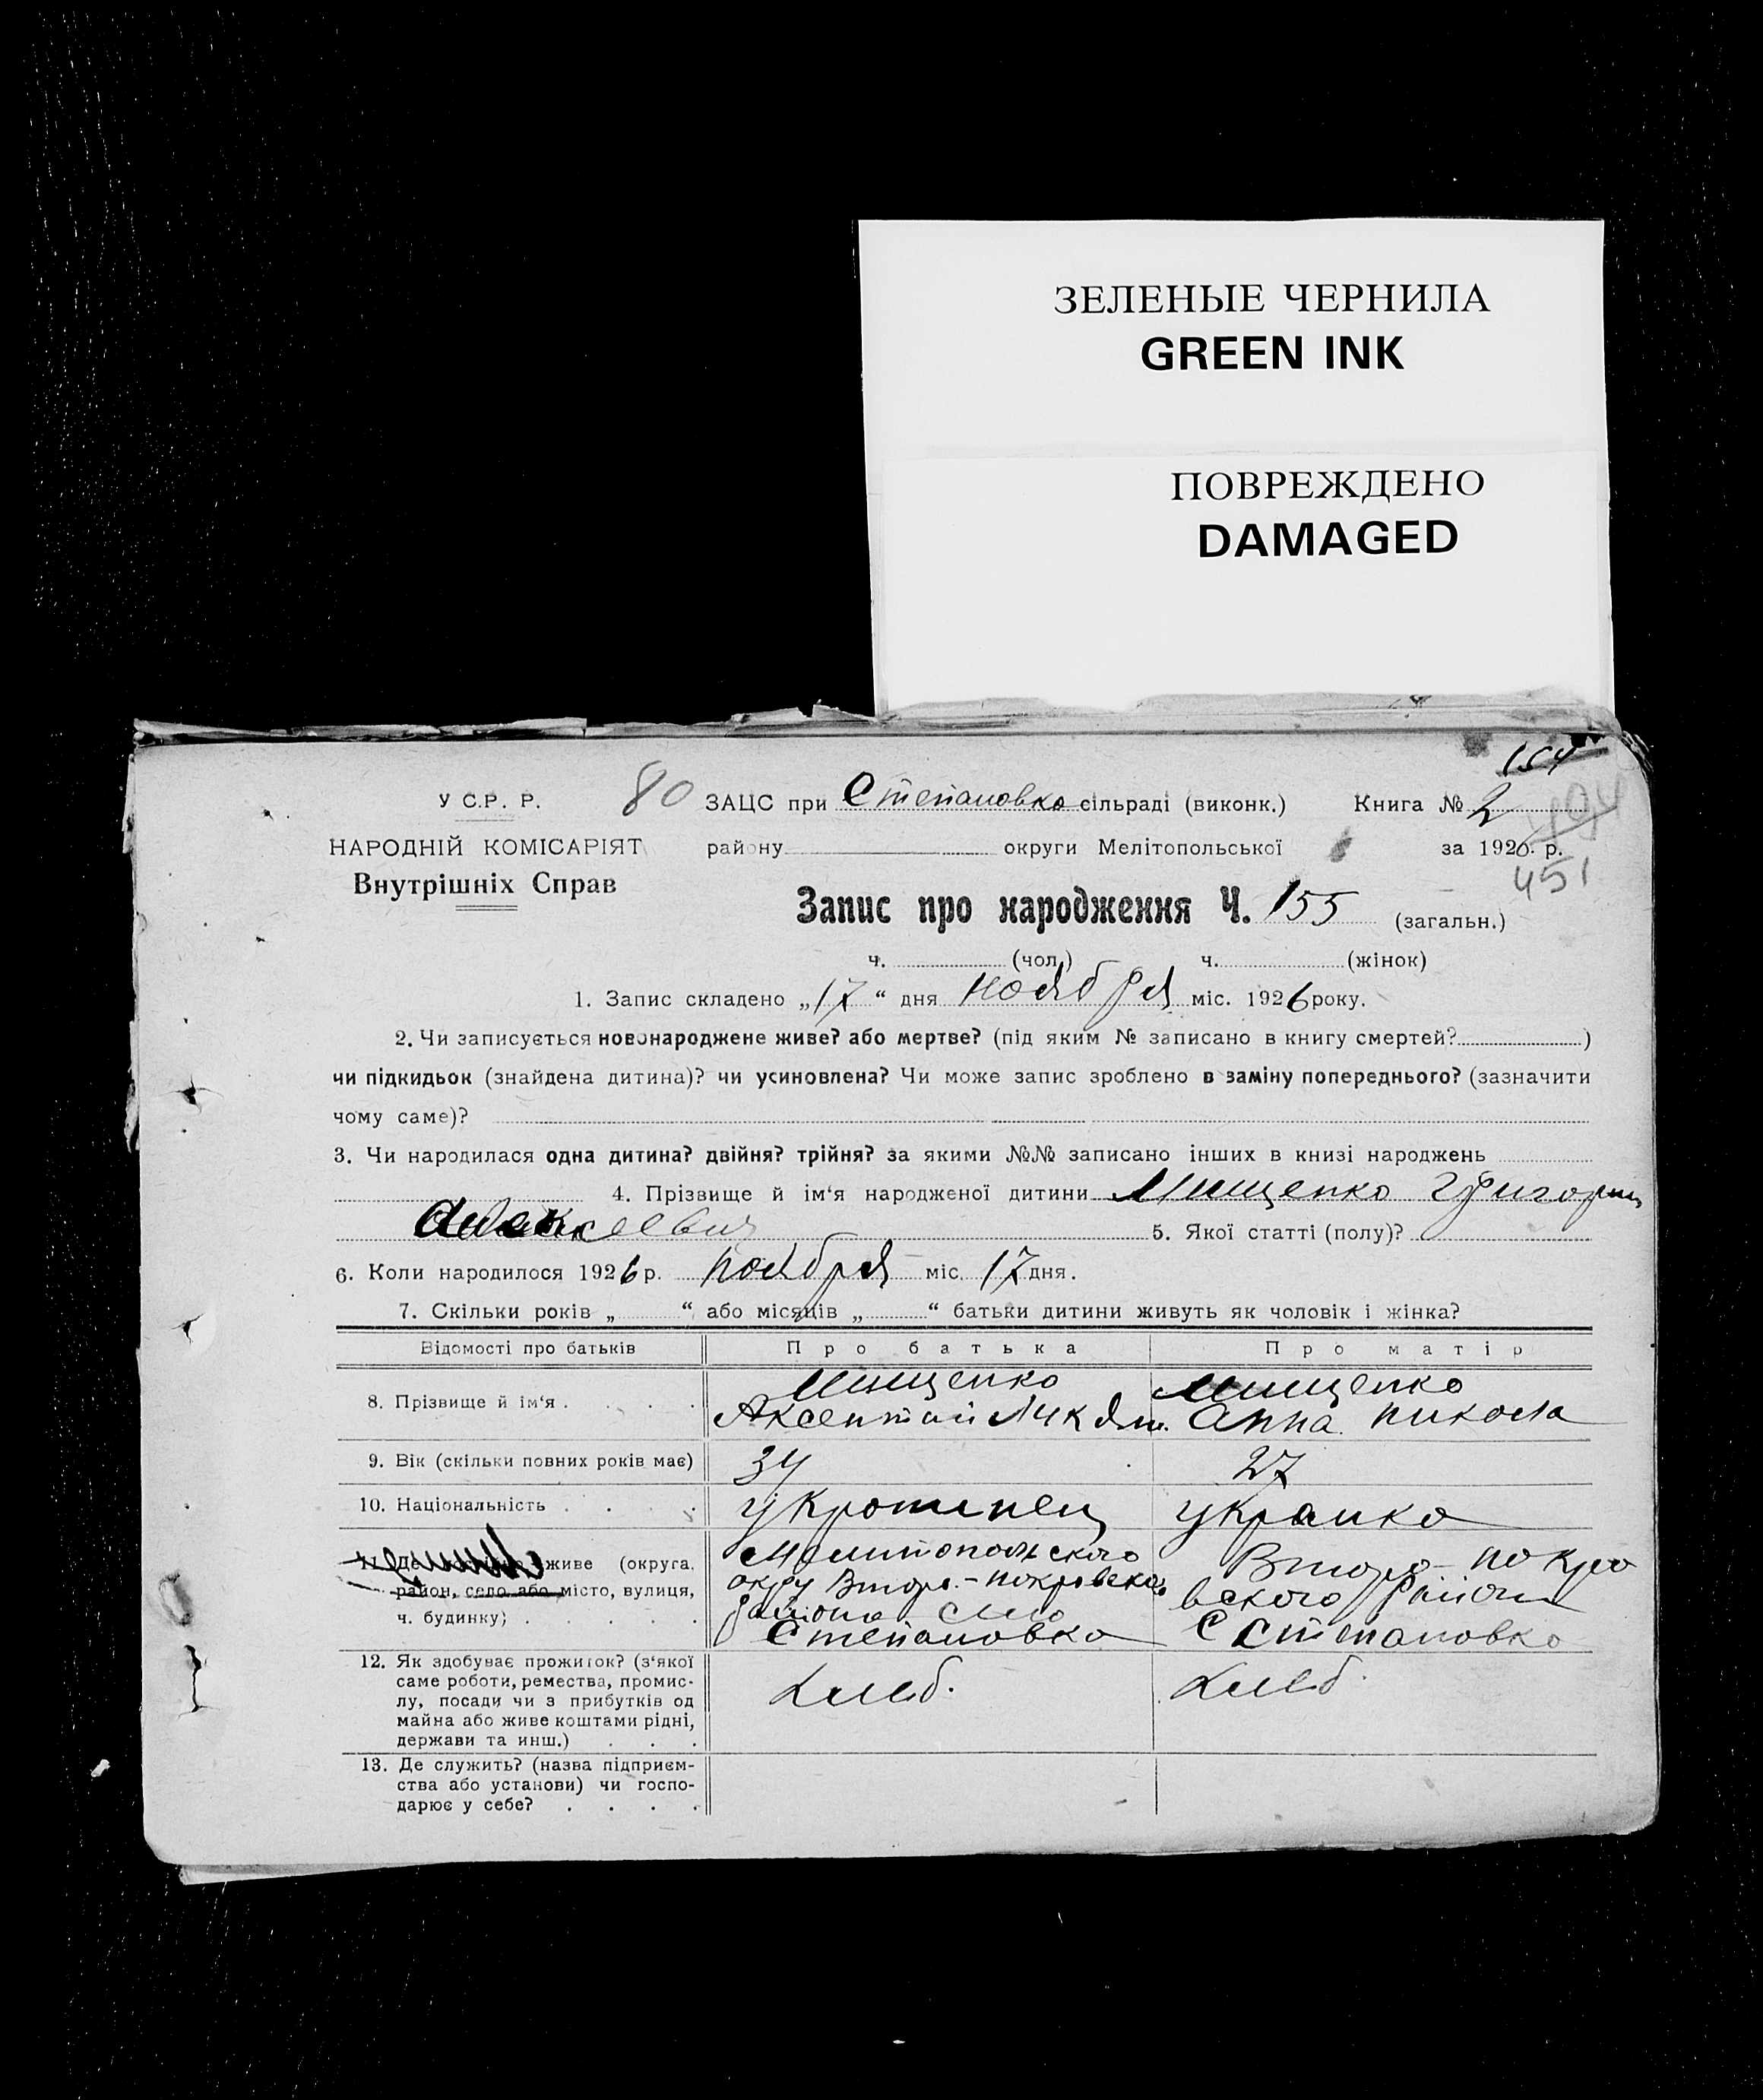 ЗЕЛЕНЫЕ ЧЕРНИЛА
GREEN INK
ПОВРЕЖДЕНО
DAMAGED
154
У С.Р. Р. 80 ЗАЦС при Степановко сільраді (виконк.) Книга № 2
НАРОДНІЙ КОМІСАРІЯТ району округи Мелітопольської за 1926 р.
451
Внутрішніх Справ
Запис про народження Ч. 155 (загальн.)
ч. (чол.) ч. (жінок)
1. Запис складено „17“ дня ноября міс. 1926 року.
2. Чи записується новонароджене живе? або мертве? (під яким № записано в книгу смертей? )
чи підкидьок (знайдена дитина)? чи усиновлена? Чи може запис зроблено в заміну попереднього? (зазначити
чому саме)?
3. Чи народилася одна дитина? двійня? трійня? за якими №№ записано інших в книзі народжень
4. Прізвище й ім‘я народженої дитини Мищенко Григорий
5. Якої статті (полу)?
6. Коли народилося 1926 р. ноября міс. 17 дня.
7. Скільки років „ “ або місяців „ “ батьки дитини живуть як чоловік і жінка?
Відомості про батьків Про батька Про матір
8. Прізвище й ім‘я . . . . Мищенко Мищенко
Аксентий Анна Никола
9. Вік (скільки повних років має) 34 27
10. Національність . . . . украинец украинко
11. Де живе (округа, Мелитопольского Второ-покро
район, село або місто, вулиця, окру Второ-покровского вского района
ч. будинку) . . . . . района село
Степановко С Степановко
12. Як здобуває прожиток? (з‘якої
саме роботи, ремества, промис- Хлеб. Хлеб.
лу, посади чи з прибутків од
майна або живе коштами рідні,
держави та инш.) . . .
13. Де служить? (назва підприєм-
ства або установи) чи госпо-
дарює у себе? . . . .